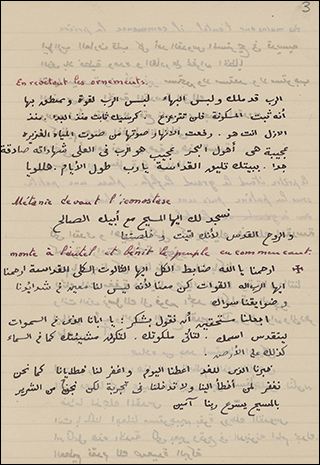 3
En revêtant les ornements.
الرب قد ملك ولبس البهاء لبس الرب القوة وتمنطق بها
ثبت المسكونة فلن تتزعزع . كرسيك ثابت منذ البدء . منذ
الازل انت هو . رفعت الانهار صوتها من صوت المياه الغزيرة
عجيبة هي أهوال البحر عجيب هو الرب في العلى شهاداته صادقة
جدا . ببيتك تليق القداسة يا رب طول الأيام . هللويا
Métanie devant l'iconostase
نسجد لك ايها المسيح مع أبيك الصالح
والروح القدس لأنك أتيت وخلصتنا
monte à l'autel et bénit le peuple en commençant.
ارحمنا يا الله ضابط الكل ايها الثالوث الكلي القداسة ارحمنا
ايها الرب اله القوات كن معنا لأنه ليس لنا معين في شدائدنا
و ضيقاتنا سواك
اجعلنا مستحقين أن نقول بشكر : يا ابانا الذي في السموات
ليتقدس اسمك . لتأتي ملكوتك . لتكن مشيئتك كما في السماء
كذلك على الأرض .
خبزنا الذي للغد اعطنا اليوم واغفر لنا خطايانا كما نحن
نغفر لمن أخطأ الينا ولا تدخلنا في تجربة لكن نجنا من الشرير
بالمسيح يسوع ربنا آمين